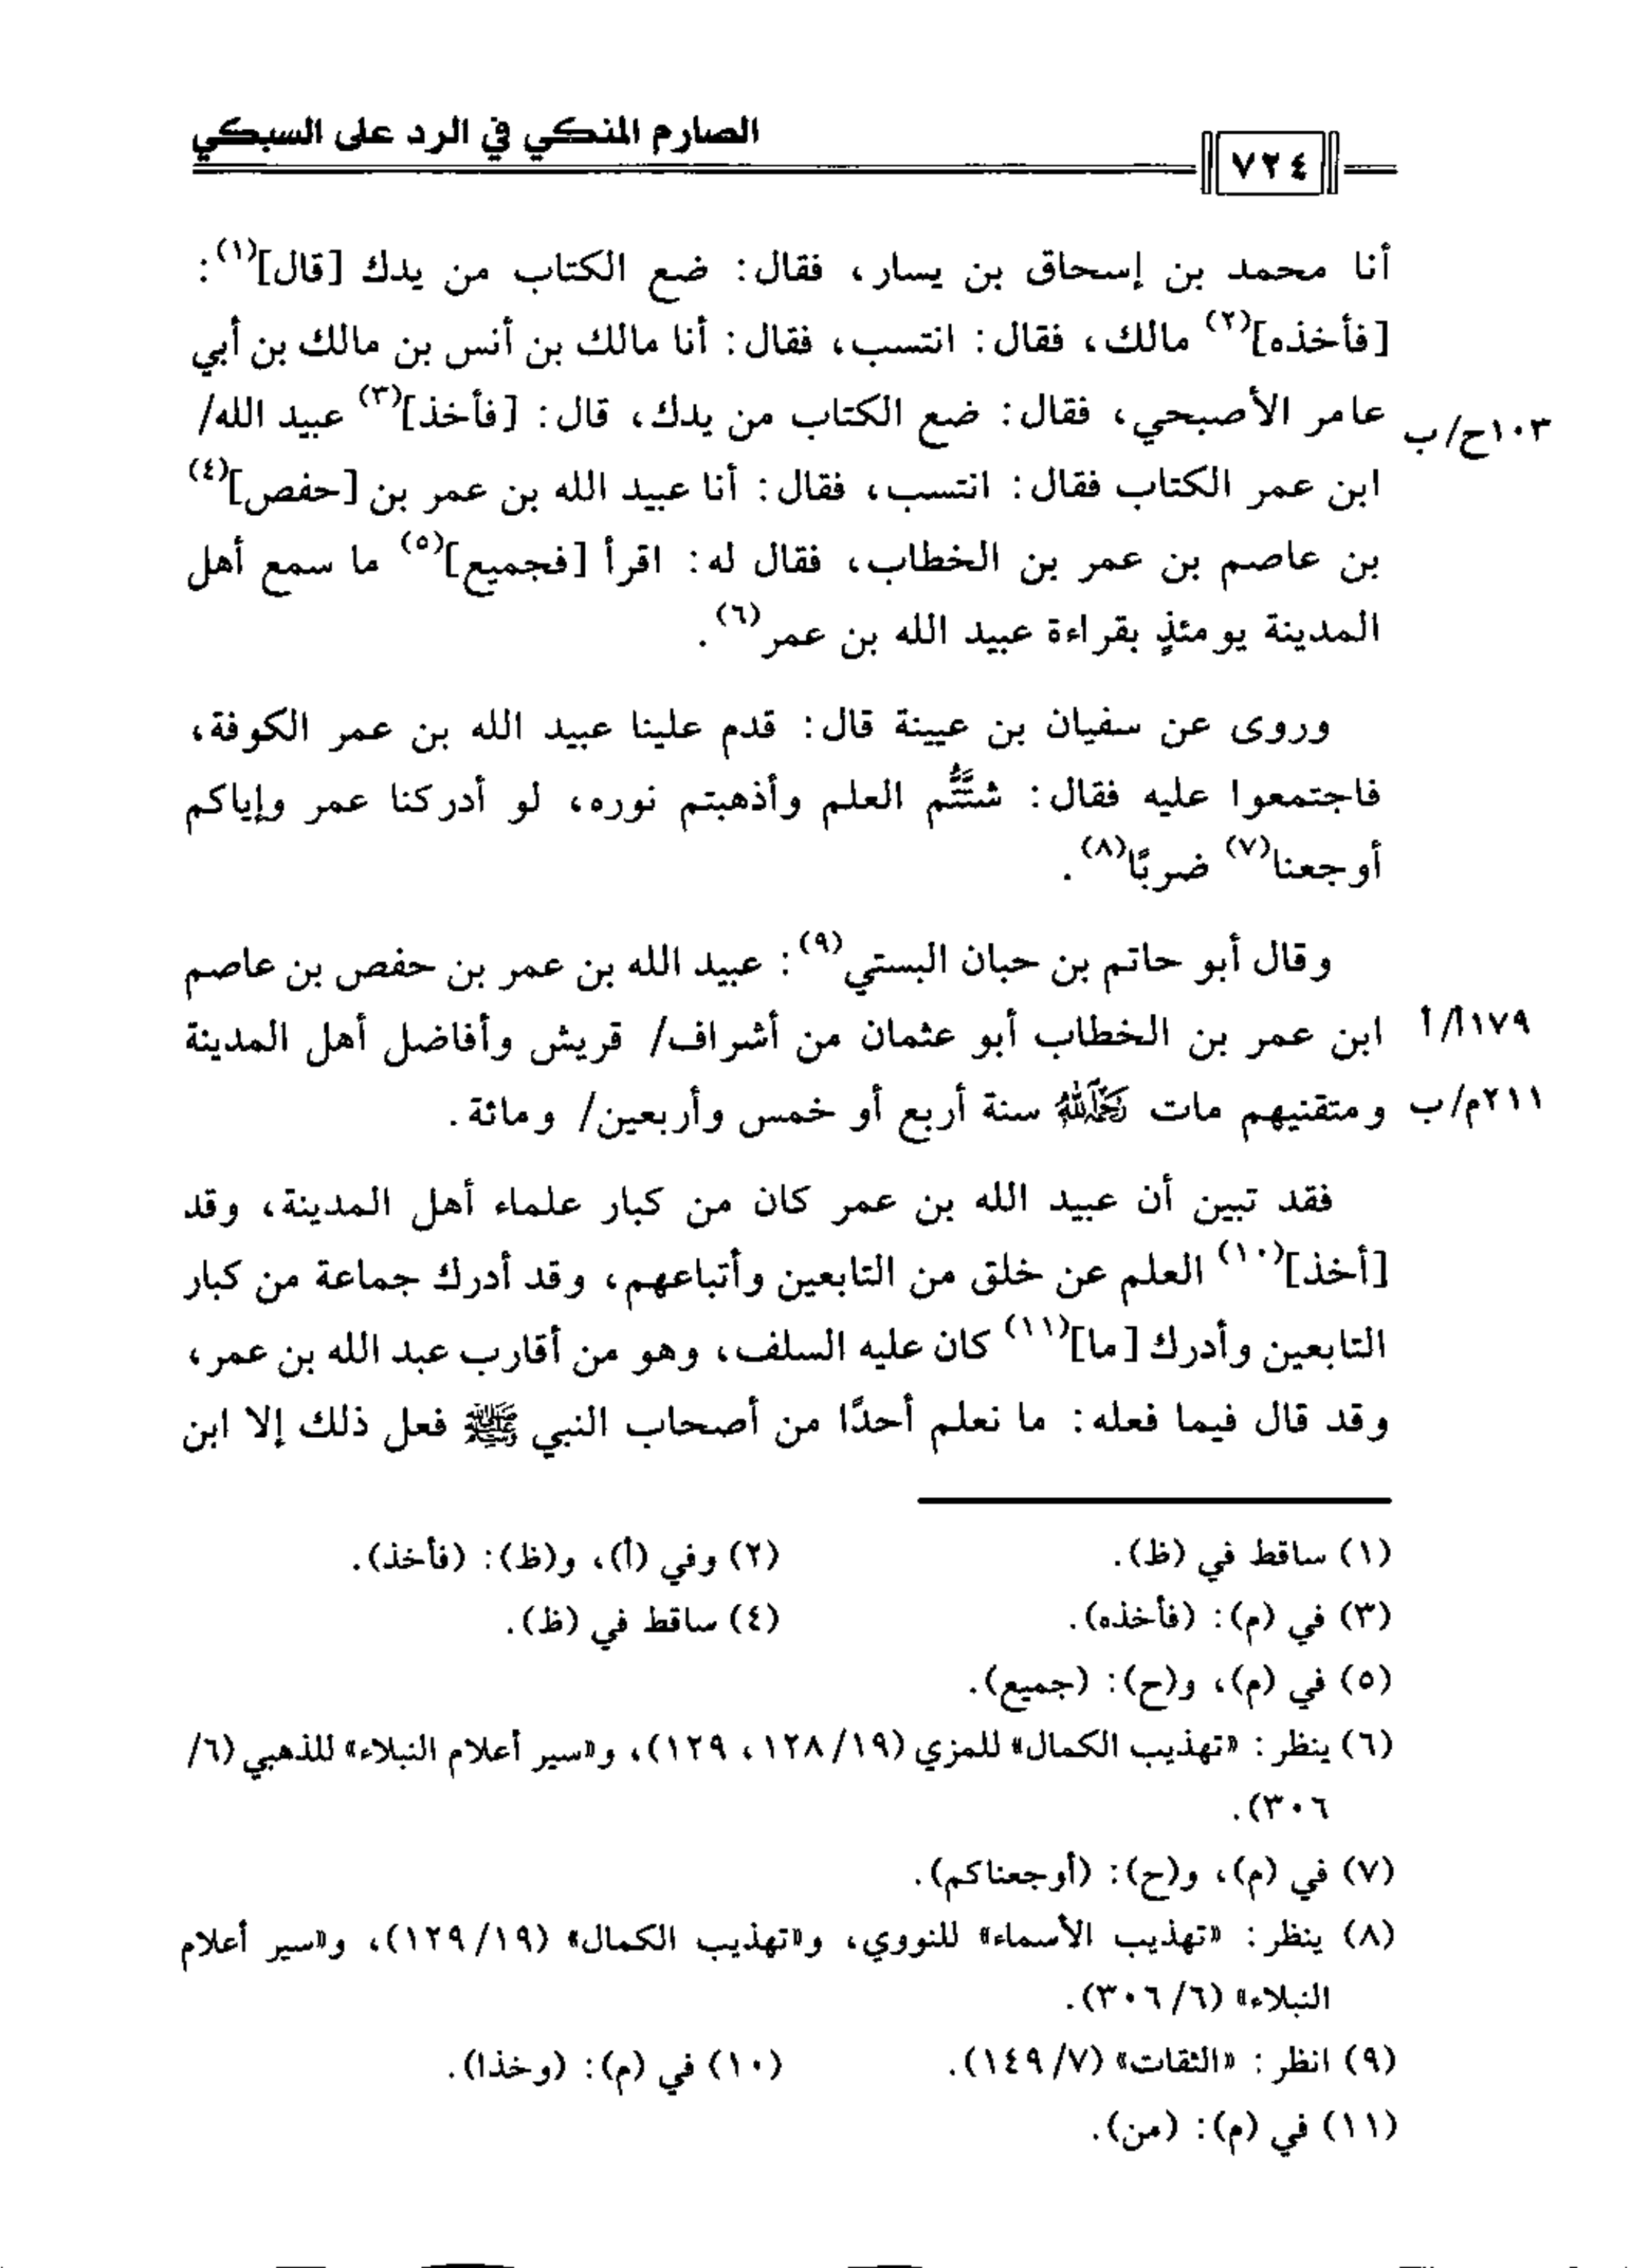 الصارم المنكي في الرد على السبكي
٧٢٤
أنا محمد بن إسحاق بن يسار، فقال: ضع الكتاب من يدك [قال](١):
[فأخذه](٢) مالك، فقال: انتسب، فقال: أنا مالك بن أنس بن مالك بن أبي
عامر الأصبحي، فقال: ضع الكتاب من يدك، قال: [فأخذ](٣) عبيد الله/
١٠٣ح/ب
ابن عمر الكتاب فقال: انتسب، فقال: أنا عبيد الله بن عمر بن [حفص](٤)
بن عاصم بن عمر بن الخطاب، فقال له: اقرأ [فجميع](٥) ما سمع أهل
المدينة يومئذٍ بقراءة عبيد الله بن عمر(٦).
وروى عن سفيان بن عيينة قال: قدم علينا عبيد الله بن عمر الكوفة،
فاجتمعوا عليه فقال: شنَّتُم العلم وأذهبتم نوره، لو أدركنا عمر وإياكم
أوجعنا(٧) ضربًا(٨).
وقال أبو حاتم بن حبان البستي(٩): عبيد الله بن عمر بن حفص بن عاصم
ابن عمر بن الخطاب أبو عثمان من أشراف/ قريش وأفاضل أهل المدينة
١٧٩أ/أ
ومتقنيهم مات رحمه الله سنة أربع أو خمس وأربعين/ ومائة.
٢١١م/ب
فقد تبين أن عبيد الله بن عمر كان من كبار علماء أهل المدينة، وقد
[أخذ](١٠) العلم عن خلق من التابعين وأتباعهم، وقد أدرك جماعة من كبار
التابعين وأدرك [ما](١١) كان عليه السلف، وهو من أقارب عبد الله بن عمر،
وقد قال فيما فعله: ما نعلم أحدًا من أصحاب النبي ﷺ فعل ذلك إلا ابن
(١) ساقط في (ظ).
(٢) وفي (أ)، و(ظ): (فأخذ).
(٣) في (م): (فأخذه).
(٤) ساقط في (ظ).
(٥) في (م)، و(ح): (جميع).
(٦) ينظر: «تهذيب الكمال» للمزي (١٩/ ١٢٨، ١٢٩)، و«سير أعلام النبلاء» للذهبي (٦/
٣٠٦).
(٧) في (م)، و(ح): (أوجعناكم).
(٨) ينظر: «تهذيب الأسماء» للنووي، و«تهذيب الكمال» (١٩/ ١٢٩)، و«سير أعلام
النبلاء» (٦/ ٣٠٦).
(٩) انظر: «الثقات» (٧/ ١٤٩).
(١٠) في (م): (وخذا).
(١١) في (م): (من).